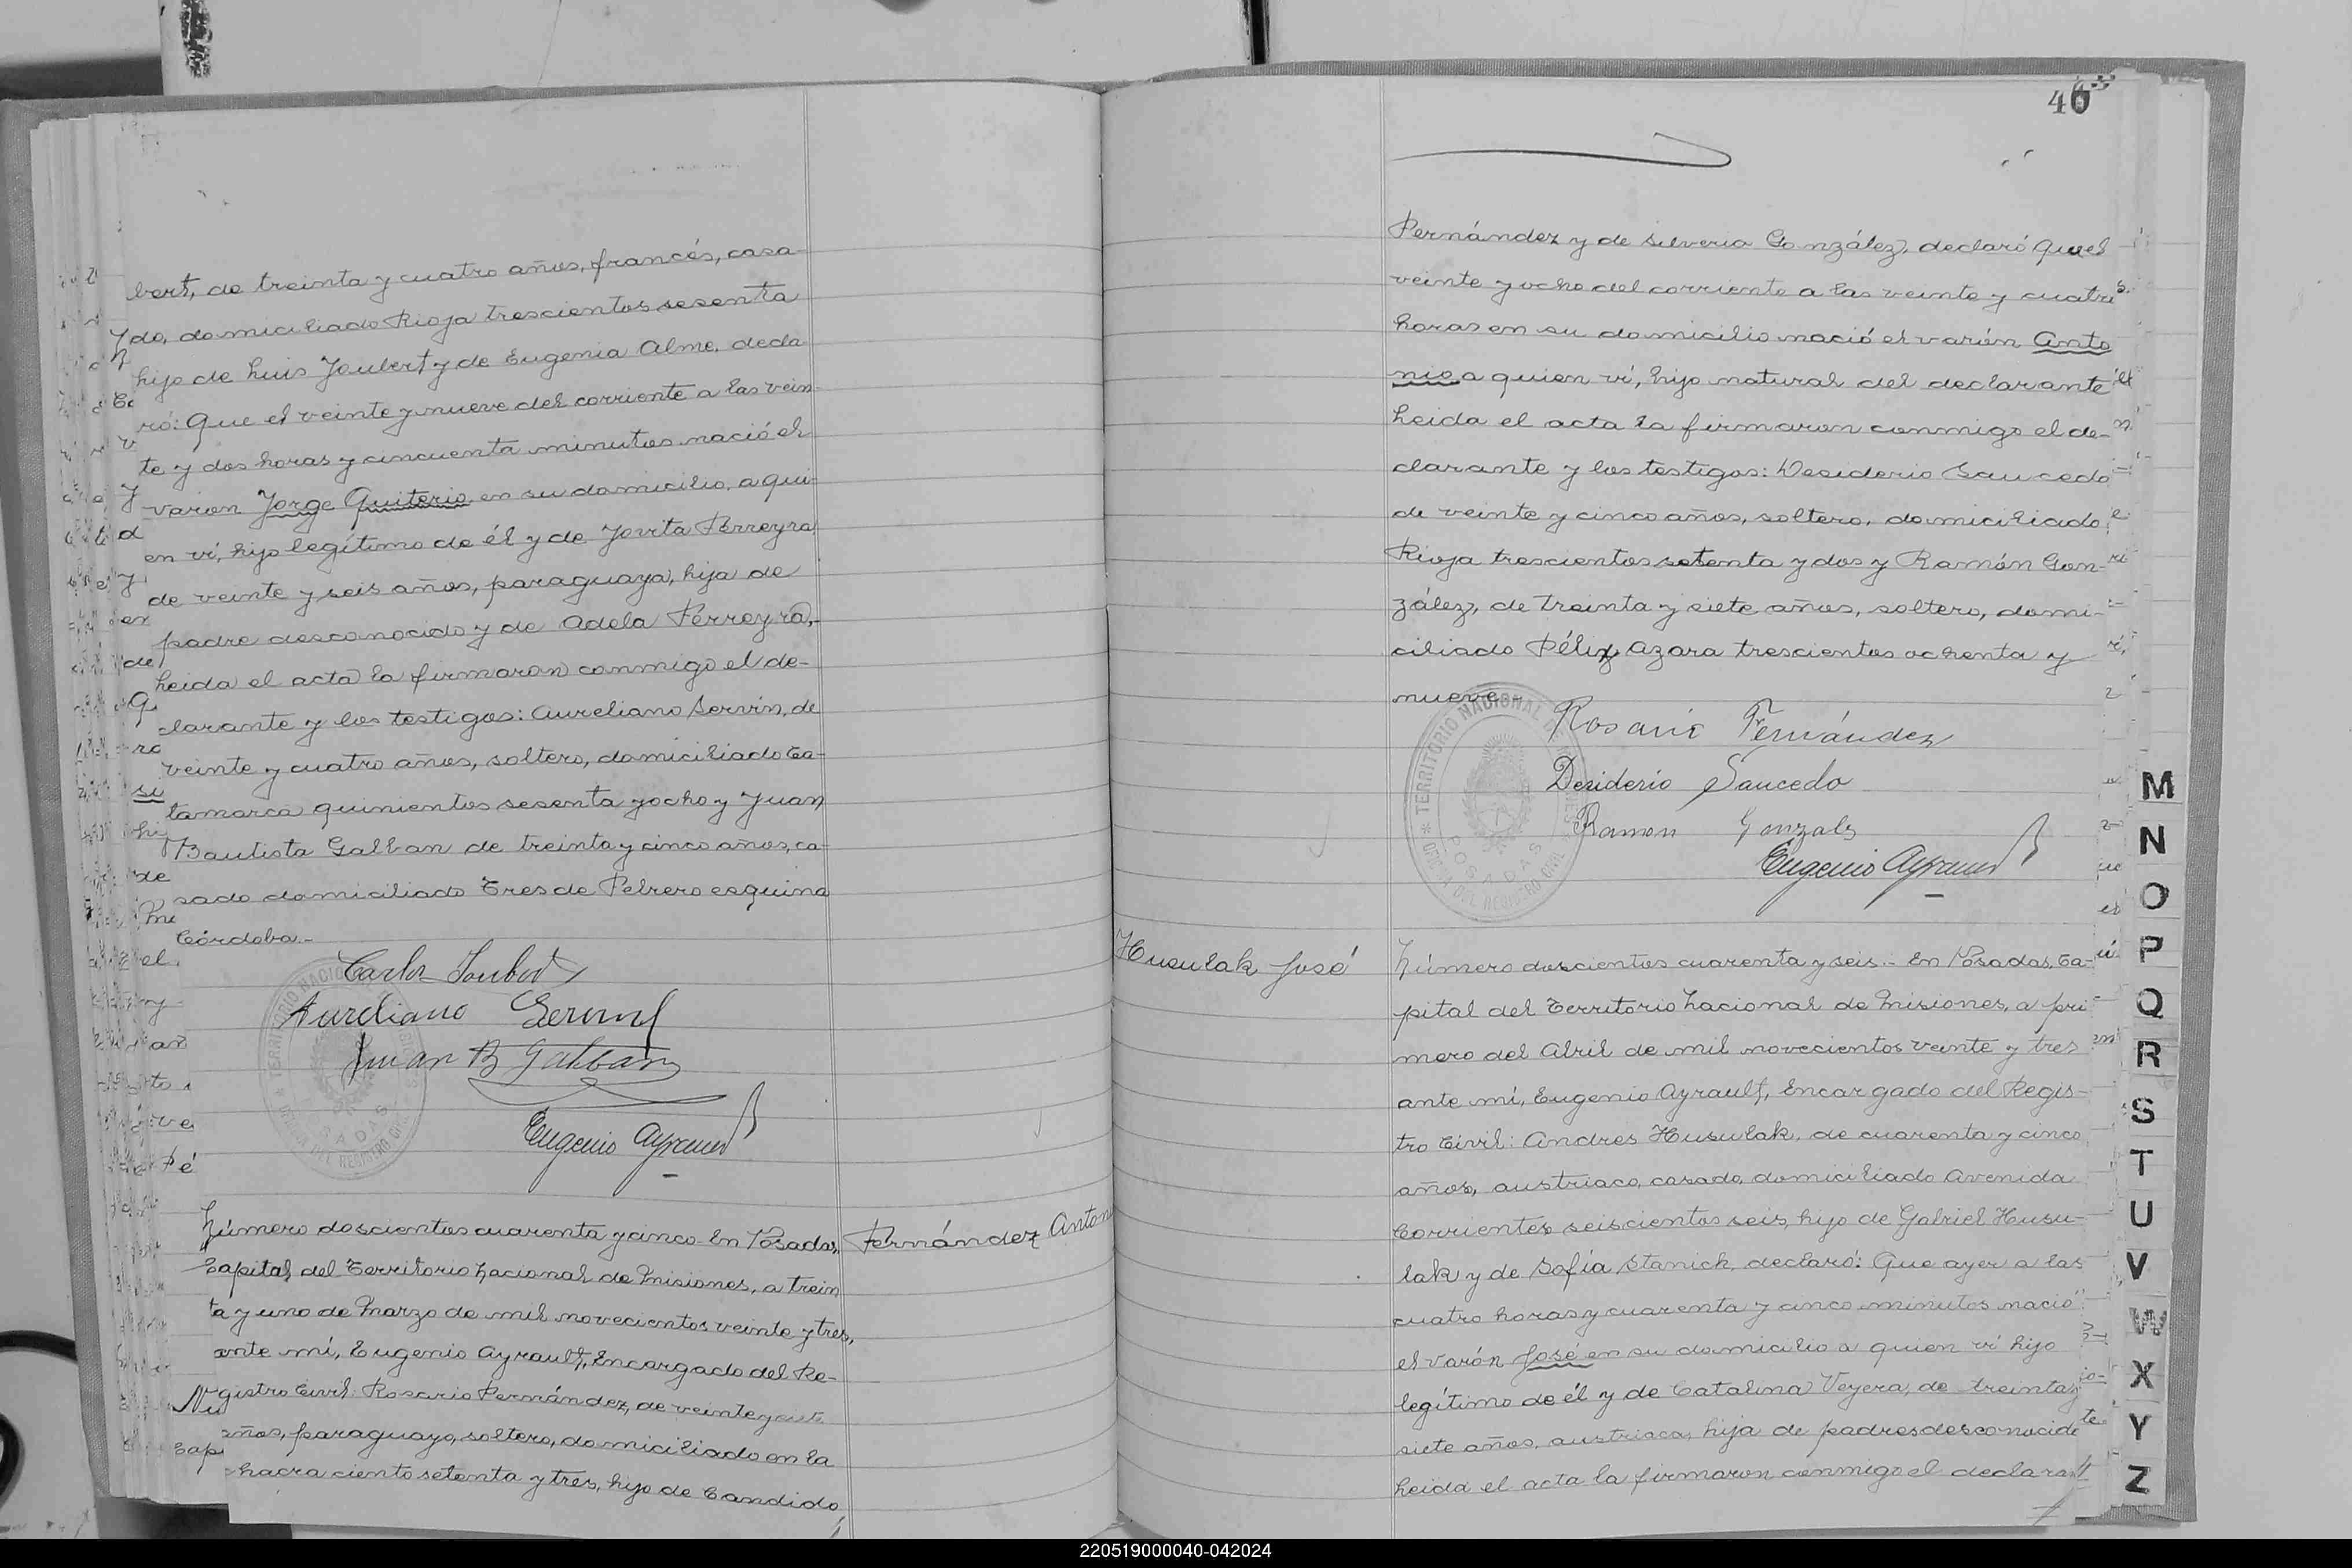 bert, de treinta y cuatro años, francés, casa-
do, domiciliado Rioja trescientos sesenta
hijo de Luis Joubert y de Eugenia Alme, decla-
ró: Que el veinte y nueve del corriente a las vein-
te y dos horas y cincuenta minutos nació el
varon Jorge Quiterio en su domicilio, a qui-
en ví, hijo legítimo de él y de Jovita Ferreyra,
de veinte y seis años, paraguaya, hija de
padre desconocido y de Adela Ferreyra,-
Leida el acta la firmaron conmigo el de-
clarante y los testigos: Aureliano Servín, de
veinte y cuatro años, soltero, domiciliado Ca-
tamarca quinientos sesenta y ocho y Juan
Bautista Galban de treinta y cinco años, ca-
sado domiciliado Tres de Febrero esquina
Córdoba.-
Carlos Joubert
Aureliano Servin
Juan B Galban
Eugenio Ayrault
Número doscientos cuarenta y cinco- En Posadas,
Capital del Territorio Nacional de Misiones, a trein
ta y uno de Marzo de mil novecientos veinte y tres,
ante mí, Eugenio Ayrault, Encargado del Re-
gistro Civil: Rosario Fernández, de veinte y
años, paraguayo, soltero, domiciliado en la
chacra ciento setenta y tres, hijo de Candido
Fernández Anton
46
Fernández y de Silveria González, declaró Que el
veinte y ocho del corriente a las veinte y cuatro
horas en su domicilio nació el varón Anto
nio a quien ví, hijo natural del declarante
Leida el acta la firmaron conmigo el de-
clarante y los testigos: Desiderio Saucedo
de veinte y cinco años, soltero, domiciliado
Rioja trescientos setenta y dos y Ramón Gon-
zález, de treinta y siete años, soltero, domi-
ciliado Félix Azara trescientos ochenta y
nueve-
Rosario Fernández
Desiderio Saucedo
Ramon Gonzalz
Eugenio Ayrault
TERRITORIO NACIONAL DE MISIONES
OFICINA DEL REGISTRO CIVIL
POSADAS
Husulak José
Número doscientos cuarenta y seis.- En Posadas, Ca-
pital del Territorio Nacional de Misiones, a pri
mero del Abril de mil novecientos veinte y tres
ante mí, Eugenio Ayrault, Encargado del Regis-
tro Civil: Andres Husulak, de cuarenta y cinco
años, austriaco, casado, domiciliado Avenida
Corrientes seiscientos seis, hijo de Gabriel Husu-
lak y de Sofía Stanick, declaró: Que ayer a las
cuatro horas y cuarenta y cinco minutos nació
el varón José en su domicilio a quien ví hijo
legítimo de él y de Catalina Veyera, de treinta y
siete años, austriaca, hija de padres desconocido
Leida el acta la firmaron conmigo el declaran
M
N
O
P
Q
R
S
T
U
V
W
X
Y
Z
220519000040-042024